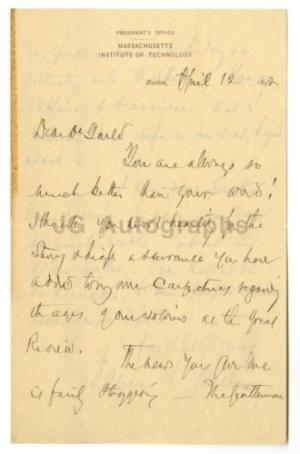 PRESIDENT'S OFFICE.
MASSACHUSETTS
INSTITUTE OF TECHNOLOGY.
April 12
Dear Dr Gould
You are always so
much better than your word!
I thank you most heartily for the
strong & high assurance you have
added to my own conjectures regarding
the ages of our soldiers at the Great
Review.
The news you give me
is fairly staggering The gentleman
JG Autographs